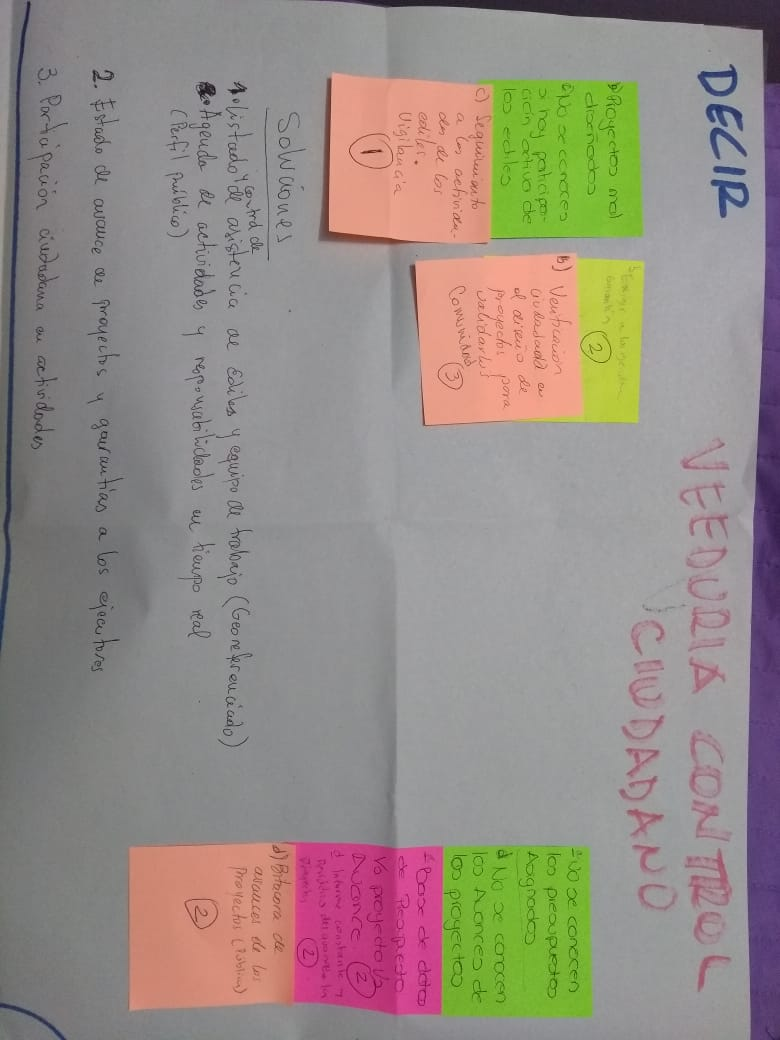 DECIR
VEEDURIA CONTROL
CIUDADANO
b) Proyectos mal
diseñados
c) No se conoces
si hay participa-
ción activa de
los ediles
c) Seguimiento
a las activida-
des de los
ediles.
Vigilancia
1
2
B) Verificación
ciudadada en
el diseño de
proyectos para
validarlos
Comunidad 3
No se conocen
los presupuestos
Asignados
d No se conocen
los Avances de
los proyectos
Base de datos
de Presupuesto
Vs proyecto Vs
Avance 2
d Informe constante y
2
d) Bitacora de
avances de los
Proyectos (Pública)
2
Soluciones
1. Listado y control de asistencia de Ediles y equipo de trabajo (Georeferenciado)
Agenda de actividades y responsabilidades en tiempo real
(Perfil público)
2. Estado de avance de proyectos y garantías a los ejecutores
3. Participación ciudadana en actividades